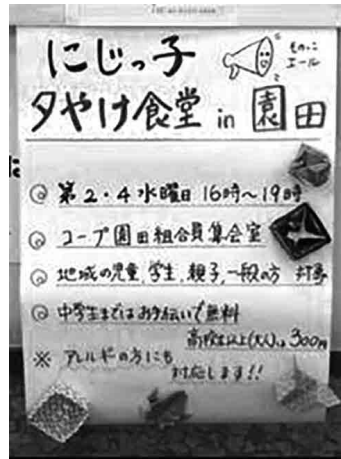 にじっ子
ものっこ
エール
夕やけ食堂 in 園田
◎ 第2・4水曜日 16時〜19時
◎ コープ園田組合員集会室
◎ 地域の児童、学生、親子、一般の方 対象
◎ 中学生まではお手伝いで無料
高校生以上(大人)は300円
※ アレルギーの方にも
対応します!!